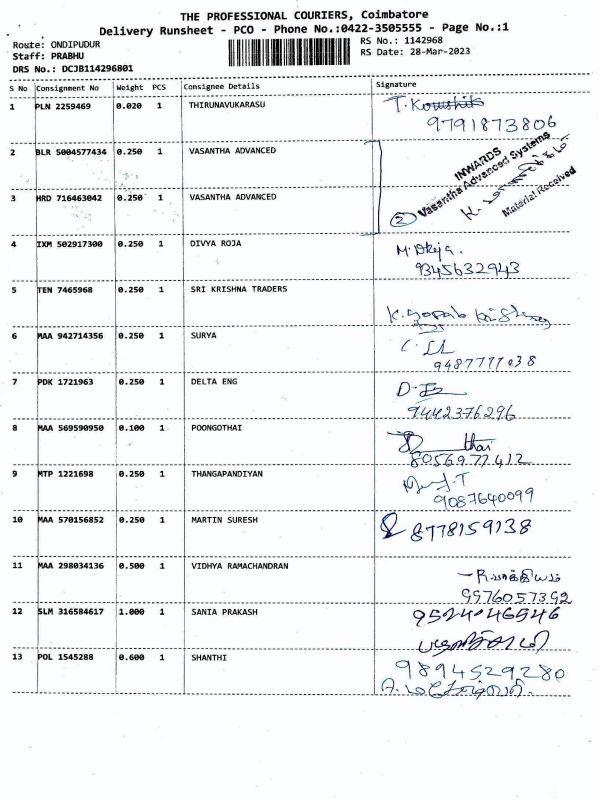 THE PROFESSIONAL COURIERS, Coimbatore
Delivery Runsheet - PCO - Phone No.:0422-3505555 - Page No.:1
Route: ONDIPUDUR RS No.: 1142968
Staff: PRABHU RS Date: 28-Mar-2023
DRS No.: DCJB114296801
S No Consignment No Weight PCS Consignee Details Signature
1 PLN 2259469 0.020 1 THIRUNAVUKARASU T.
9791873806
2 BLR 5004577434 0.250 1 VASANTHA ADVANCED
INWARDS
Vasantha Advanced Systems
Material Received
3 HRD 716463042 0.250 1 VASANTHA ADVANCED 2
4 IXM 502917300 0.250 1 DIVYA ROJA
9345632943
5 TEN 7465968 0.250 1 SRI KRISHNA TRADERS
6 MAA 942714356 0.250 1 SURYA
7 PDK 1721963 0.250 1 DELTA ENG
9442376296
8 MAA 569590950 0.100 1 POONGOTHAI
8056977412
9 MTP 1221698 0.250 1 THANGAPANDIYAN
9087640099
10 MAA 570156852 0.250 1 MARTIN SURESH 8778159138
11 MAA 298034136 0.500 1 VIDHYA RAMACHANDRAN
9976057392
12 SLM 316584617 1.000 1 SANIA PRAKASH 9524046546
13 POL 1545288 0.600 1 SHANTHI 9894529280